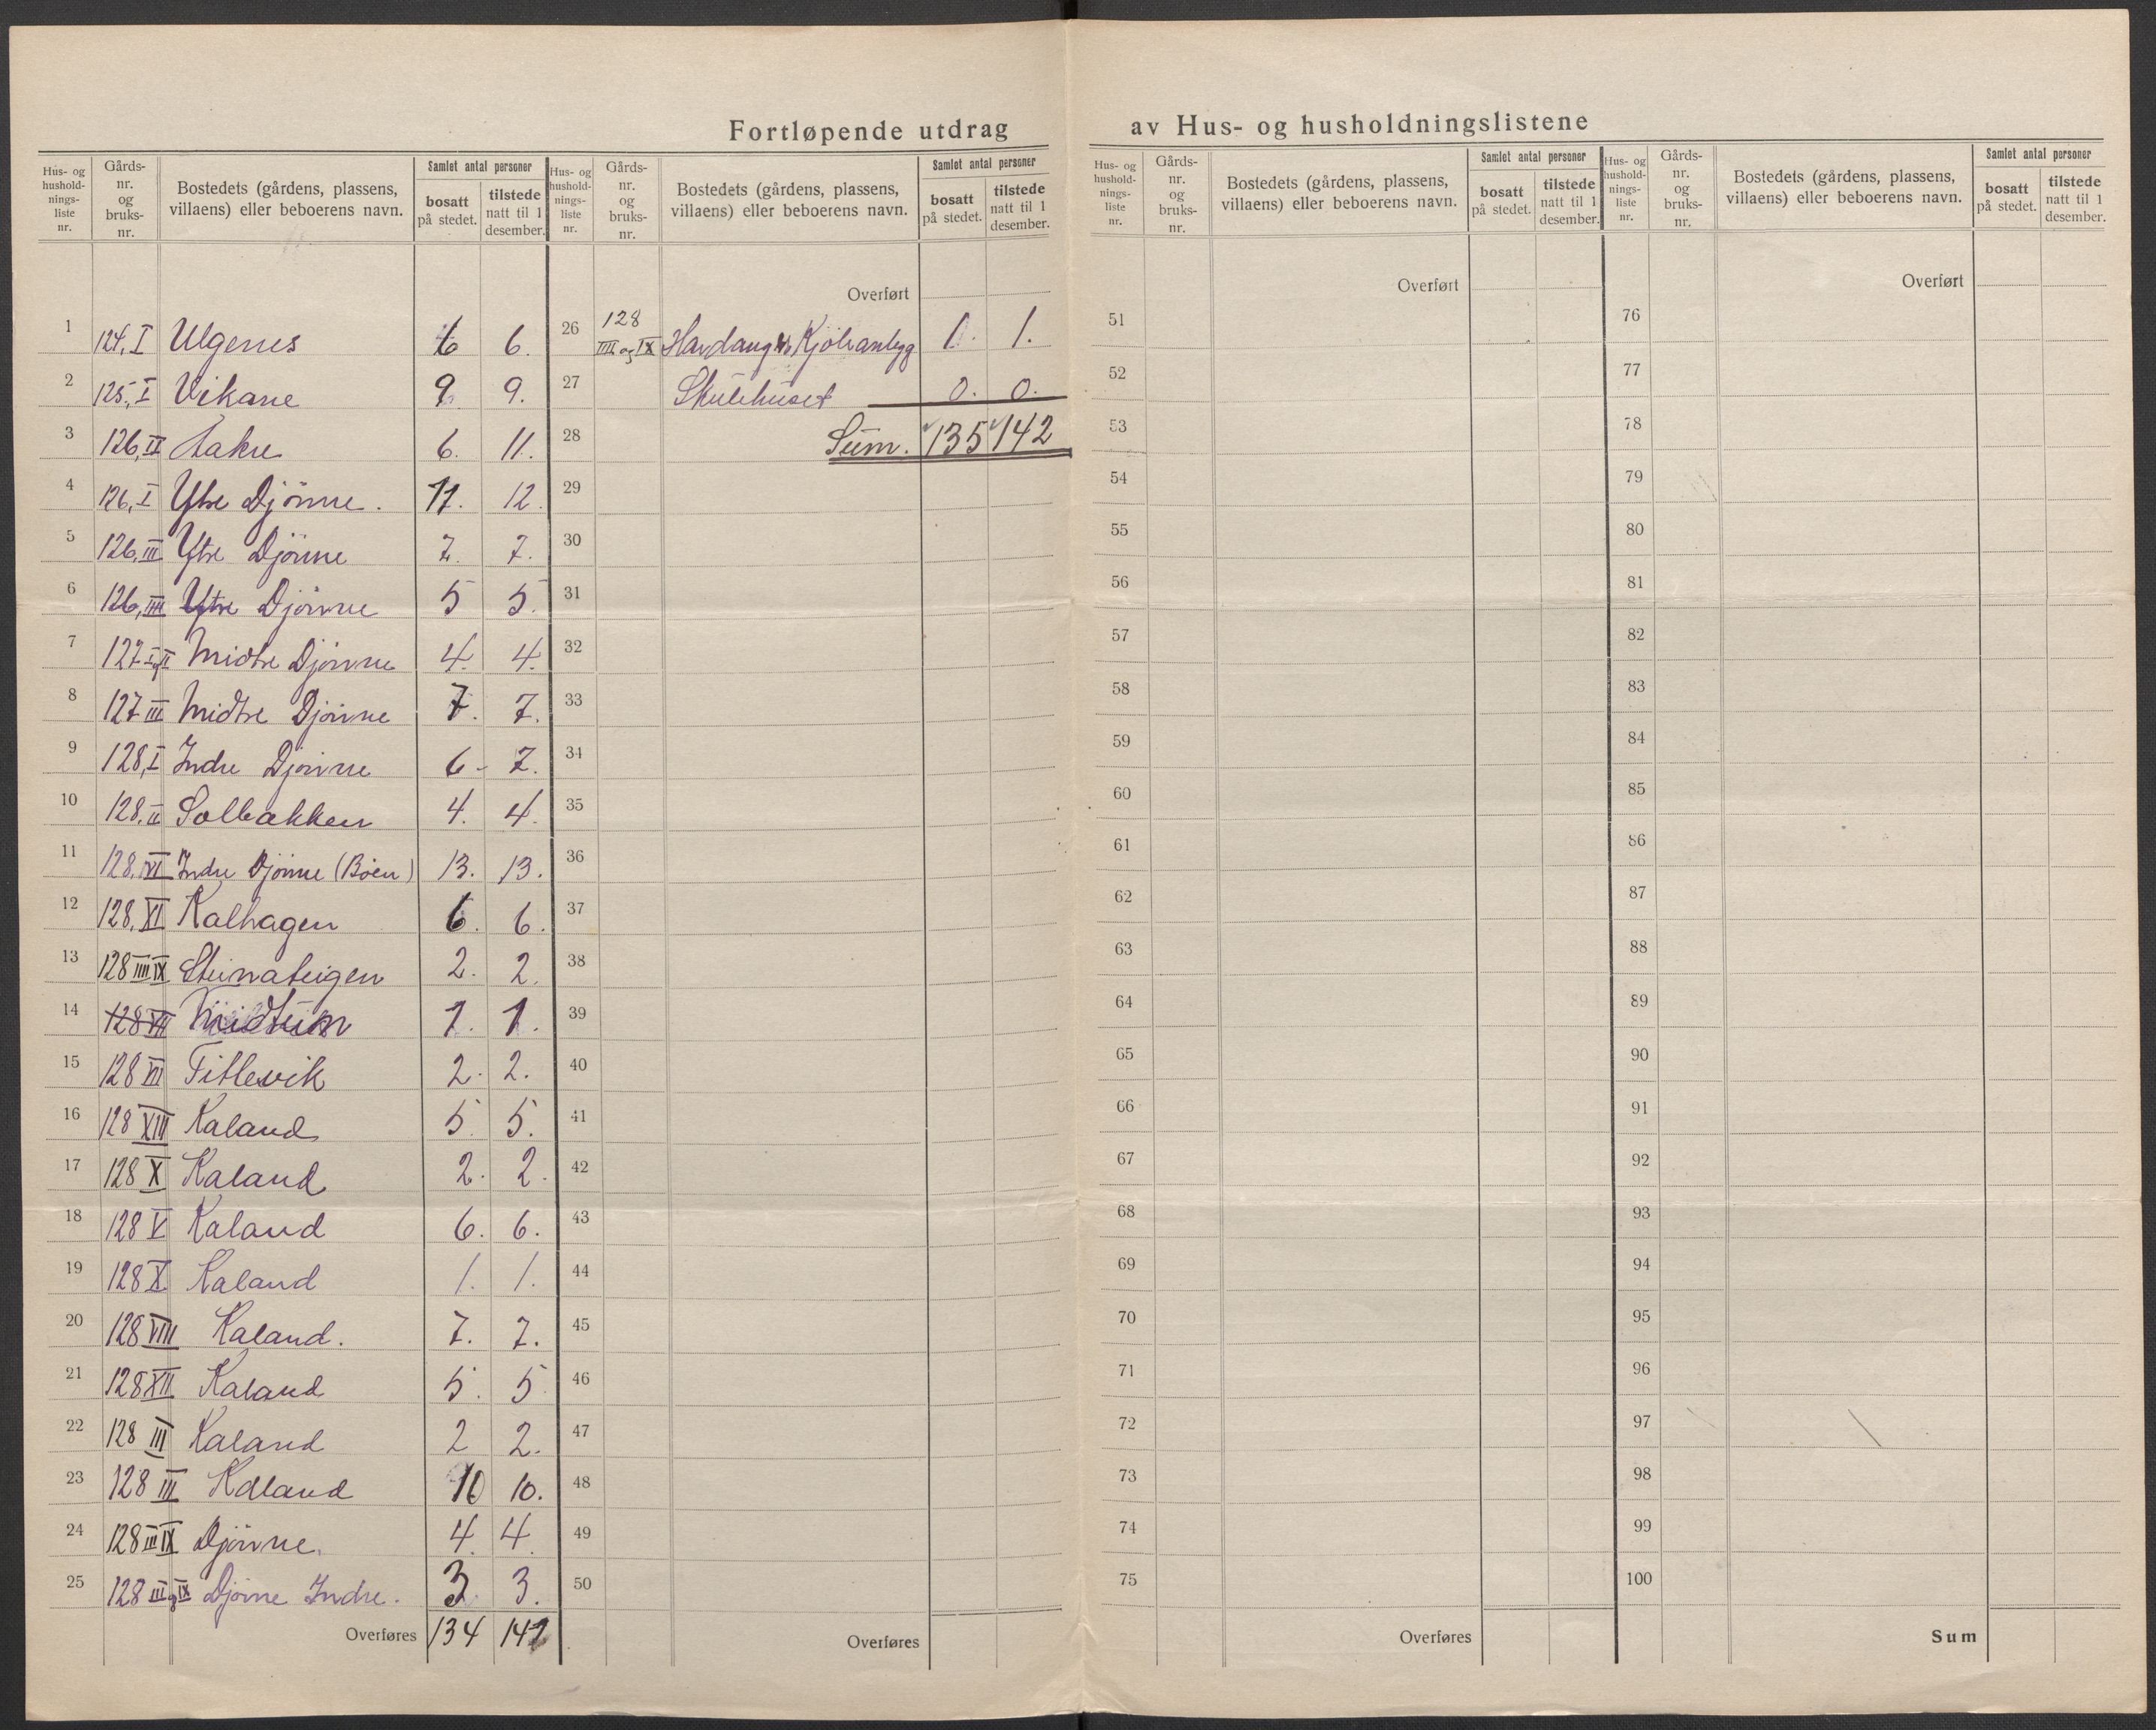 Fortløpende utdrag av Hus- og husholdningslistene
Hus- og hushold- nings- liste nr. | Gårds- nr. og bruks- nr. | Bostedets (gårdens, plassens, villaens) eller beboerens navn. | Samlet antal personer | bosatt på stedet. | tilstede natt til 1 desember.
1 124,I Ulgenes 6 6.
2 125,I Vikane 9. 9.
3 126,II Aakre 6. 11.
4 126,I Ytre Djönne. 11. 12.
5 126,III Ytre Djönne 7. 7.
6 126,IIII Ytre Djönne 5 5.
7 127 I og II Midtre Djönne 4. 4.
8 127 III Midtre Djönne 7. 7.
9 128,I Indre Djönne 6- 7.
10 128.II Solbakken 4. 4.
11 128.VI Indre Djönne (Böen) 13. 13.
12 128.XI Kalhagen 6. 6.
13 128 IIII IX Steinateigen 2. 2.
14 128 VII Midtun 1. 1.
15 128 VII Titlevik 2. 2.
16 128 XIII Kaland 5. 5.
17 128 X Kaland 2. 2.
18 128 V Kaland 6. 6.
19 128 X Kaland 1. 1.
20 128 VIII Kaland. 7. 7.
21 128 XII Kaland 5. 5
22 128 III Kaland 2 2.
23 128 III Kaland 10 10.
24 128 III IX Djönne. 4. 4.
25 128 III og IX Djönne Indre. 3. 3.
Overføres 134 141
Hus- og hushold- nings- liste nr. | Gårds- nr. og bruks- nr. | Bostedets (gårdens, plassens, villaens) eller beboerens navn. | Samlet antal personer | bosatt på stedet. | tilstede natt til 1 desember.
Overført
26 128 IIII og IX Hardang. Kjöleanlegg 1. 1.
27 Skulehuset 0. 0.
28 Sum. 135 142
29
30
31
32
33
34
35
36
37
38
39
40
41
42
43
44
45
46
47
48
49
50
Overføres
Hus- og hushold- nings- liste nr. | Gårds- nr. og bruks- nr. | Bostedets (gårdens, plassens, villaens) eller beboerens navn. | Samlet antal personer | bosatt på stedet. | tilstede natt til 1 desember.
Overført
51
52
53
54
55
56
57
58
59
60
61
62
63
64
65
66
67
68
69
70
71
72
73
74
75
Overføres
Hus- og hushold- nings- liste nr. | Gårds- nr. og bruks- nr. | Bostedets (gårdens, plassens, villaens) eller beboerens navn. | Samlet antal personer | bosatt på stedet. | tilstede natt til 1 desember.
Overført
76
77
78
79
80
81
82
83
84
85
86
87
88
89
90
91
92
93
94
95
96
97
98
99
100
Sum